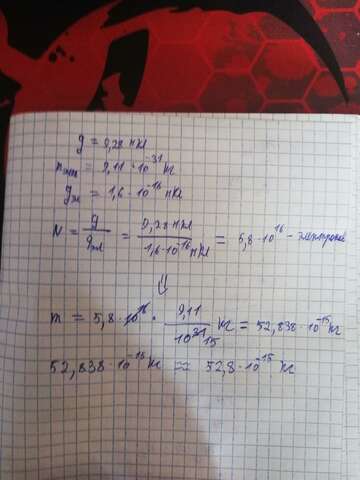 q = 9,28 нКл
m = 9,11 · 10⁻³¹ кг
qэл = 1,6 · 10⁻¹⁶ нКл
N = q / qэл = 9,28 нКл / 1,6 · 10⁻¹⁶ нКл = 5,8 · 10¹⁶ - электронов
⇓
m = 5,8 · 10¹⁶ · 9,11 / 10³¹ 15 кг = 52,838 · 10⁻¹⁵ кг
52,838 · 10⁻¹⁵ кг ≈ 52,8 · 10⁻¹⁵ кг